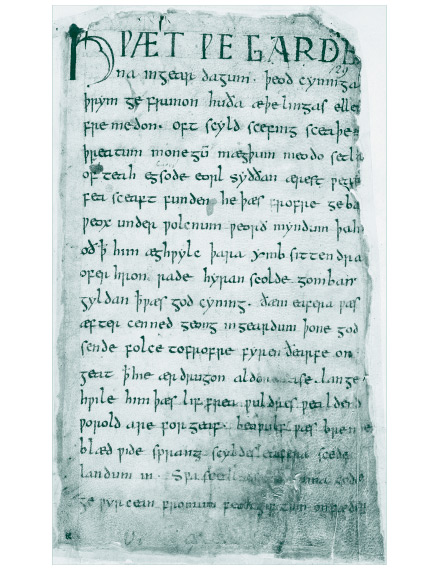 HǷÆT ǷE GARDE
129
na ingear dagum. þeod cyninga
þrym ge frunon huða æþelingas elle
fremedon. oft scyld scefing sceaþe
þreatum monegū mægþum meodo setla
of teah egsode eorl syððan ærest ƿea
fea sceaft funden he þæs frofre geba
ƿeox under ƿolcnum ƿeorð myndum þah
oð ꝥ him æghƿylc þara ymb sittendra
ofer hron rade hyran scolde gomban
gyldan ꝥ ƿæs god cyning. ðæm eafera ƿæs
æfter cenned geong ingeardum þone god
sende folce tofrofre fyren ðearfe on
geat ꝥ hie ær drugon aldor ase. lange
hƿile him þæs lif frea ƿuldres ƿealdend
ƿorold are for geaf. beoƿulf ƿæs breme
blæd ƿide sprang scyldes eafera scede
landum in. Sƿa sceal uma gode
ge ƿyrcean fromum feohgiftum on fæder